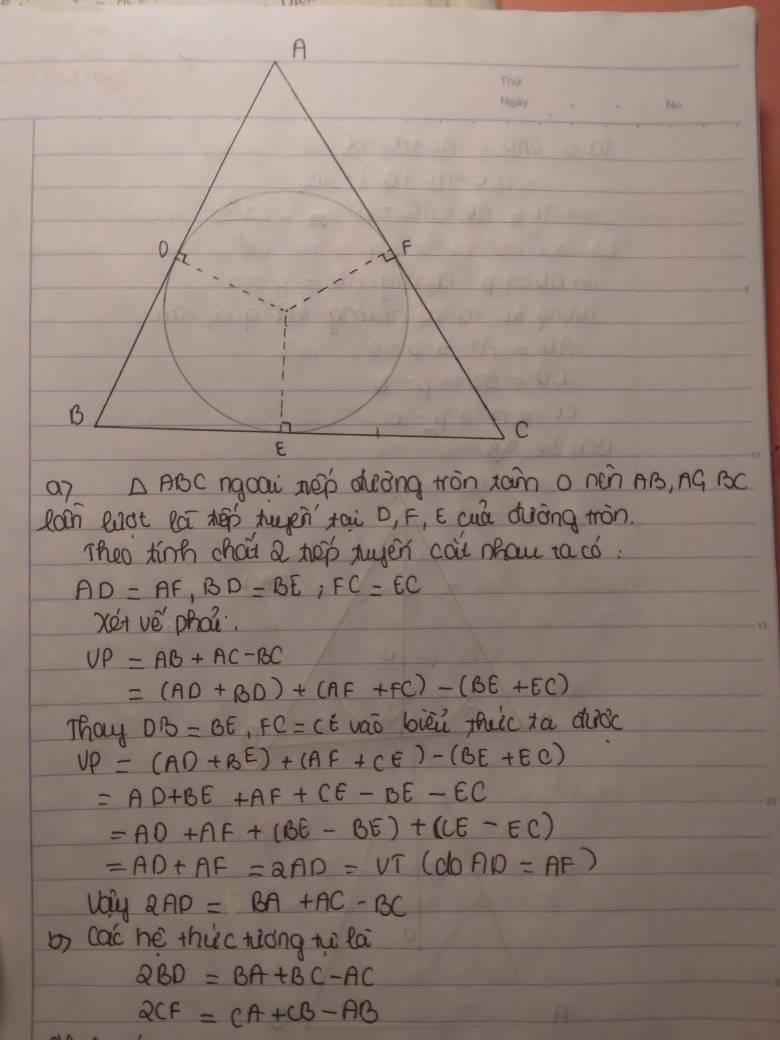 A
Thứ
Ngày . . No
D F
B
E C
a) Δ ABC ngoại tiếp đường tròn tâm O nên AB, AC, BC
lần lượt là tiếp tuyến tại D, F, E của đường tròn.
Theo tính chất 2 tiếp tuyến cắt nhau ta có :
AD = AF, BD = BE ; FC = EC
Xét vế phải :
VP = AB + AC - BC
= (AD + BD) + (AF + FC) - (BE + EC)
Thay DB = BE, FC = CE vào biểu thức ta được
VP = (AD + BE) + (AF + CE) - (BE + EC)
= AD + BE + AF + CE - BE - EC
= AD + AF + (BE - BE) + (CE - EC)
= AD + AF = 2AD = VT (do AD = AF)
Vậy 2AD = BA + AC - BC
b) Các hệ thức tương tự là
2BD = BA + BC - AC
2CF = CA + CB - AB